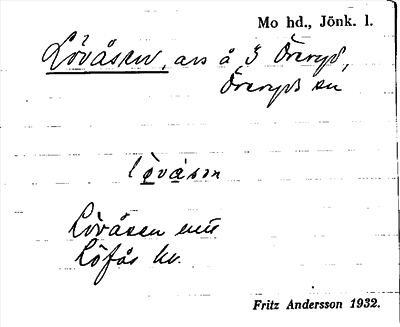 Mo hd., Jönk. l.
Lövåsen, avs å 3 Öreryd,
Öreryds sn
lövåsen
Lövåsen
Löfås hv.
Fritz Andersson 1932.